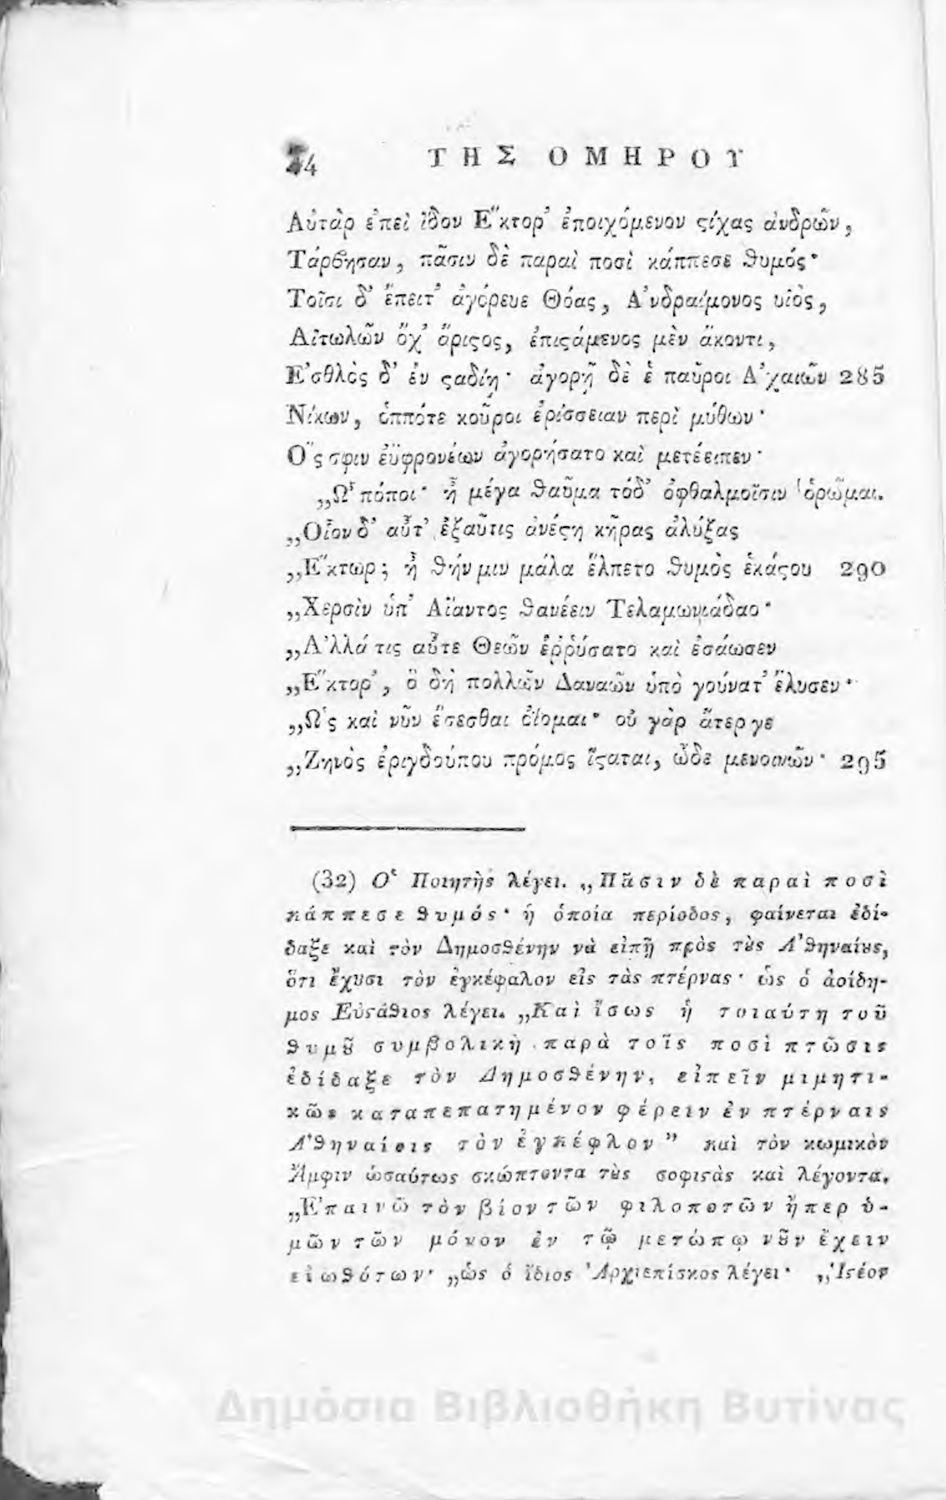 24 ΤΗΣ ΟΜΗΡΟΥ
Αὐτὰρ ἐπεὶ ἴδον Ἕκτορ' ἐποιχόμενον ϛίχας ἀνδρῶν,
Τάρβησαν, πᾶσιν δὲ παραὶ ποσὶ κάππεσε θυμός·
Τοῖσι δ' ἔπειτ' ἀγόρευε Θόας, Ἀνδραίμονος υἱὸς,
Αἰτωλῶν ὄχ' ἄριϛος, ἐπιϛάμενος μὲν ἄκοντι,
Ἐσθλὸς δ' ἐν ϛαδίῃ· ἀγορῇ δέ ἑ παῦροι Ἀχαιῶν 285
Νίκων, ὁππότε κοῦροι ἐρίσσειαν περὶ μύθων·
Ὅς σφιν ἐϋφρονέων ἀγορήσατο καὶ μετέειπεν·
„Ὢ πόποι· ἦ μέγα θαῦμα τόδ' ὀφθαλμοῖσιν ὁρῶμαι.
„Οἷον δ' αὖτ' ἐξαῦτις ἀνέϛη κῆρας ἀλύξας
„Ἕκτωρ; ἦ θήν μιν μάλα ἔλπετο θυμὸς ἑκάϛου 290
„Χερσὶν ὑπ' Αἴαντος θανέειν Τελαμωνιάδαο·
„Ἀλλά τις αὖτε Θεῶν ἐῤῥύσατο καὶ ἐσάωσεν
„Ἕκτορ', ὃ δὴ πολλῶν Δαναῶν ὑπὸ γούνατ' ἔλυσεν·
„Ὡς καὶ νῦν ἔσεσθαι ὀΐομαι· οὐ γὰρ ἄτερ γε
„Ζηνὸς ἐριγδούπου πρόμος ἵϛαται, ὧδε μενοινῶν· 295
(32) Ὁ Ποιητὴς λέγει. „Πᾶσιν δὲ παραὶ ποσὶ
κάππεσε θυμός· ἡ ὁποία περίοδος, φαίνεται ἐδί-
δαξε καὶ τὸν Δημοσθένην νὰ εἰπῇ πρὸς τȣ̀ς Ἀθηναίȣς,
ὅτι ἔχȣσι τὸν ἐγκέφαλον εἰς τὰς πτέρνας· ὡς ὁ ἀοίδη-
μος Εὐϛάθιος λέγει. „Καὶ ἴσως ἡ τοιαύτη τοῦ
θυμȣ͂ συμβολικὴ παρὰ τοῖς ποσὶ πτῶσις
ἐδίδαξε τὸν Δημοσθένην, εἰπεῖν μιμητι-
κῶς καταπεπατημένον φέρειν ἐν πτέρναις
Ἀθηναίοις τὸν ἐγκέφλον" καὶ τὸν κωμικὸν
Ἄμφιν ὡσαύτως σκώπτοντα τȣ̀ς σοφιϛὰς καὶ λέγοντα.
„Ἐπαινῶ τὸν βίον τῶν φιλοποτῶν ἤπερ ὑ-
μῶν τῶν μόνον ἐν τῷ μετώπῳ νȣ͂ν ἔχειν
εἰωθότων· „ὡς ὁ ἴδιος Ἀρχιεπίσκος λέγει· „Ἰϛέον
Δημόσια Βιβλιοθήκη Βυτίνας